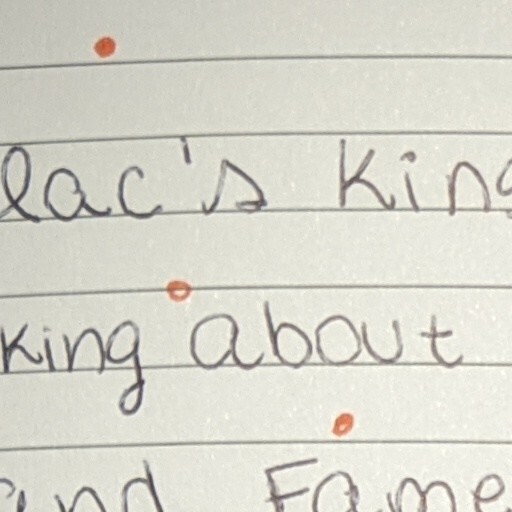 lac's King
king about
and Fame